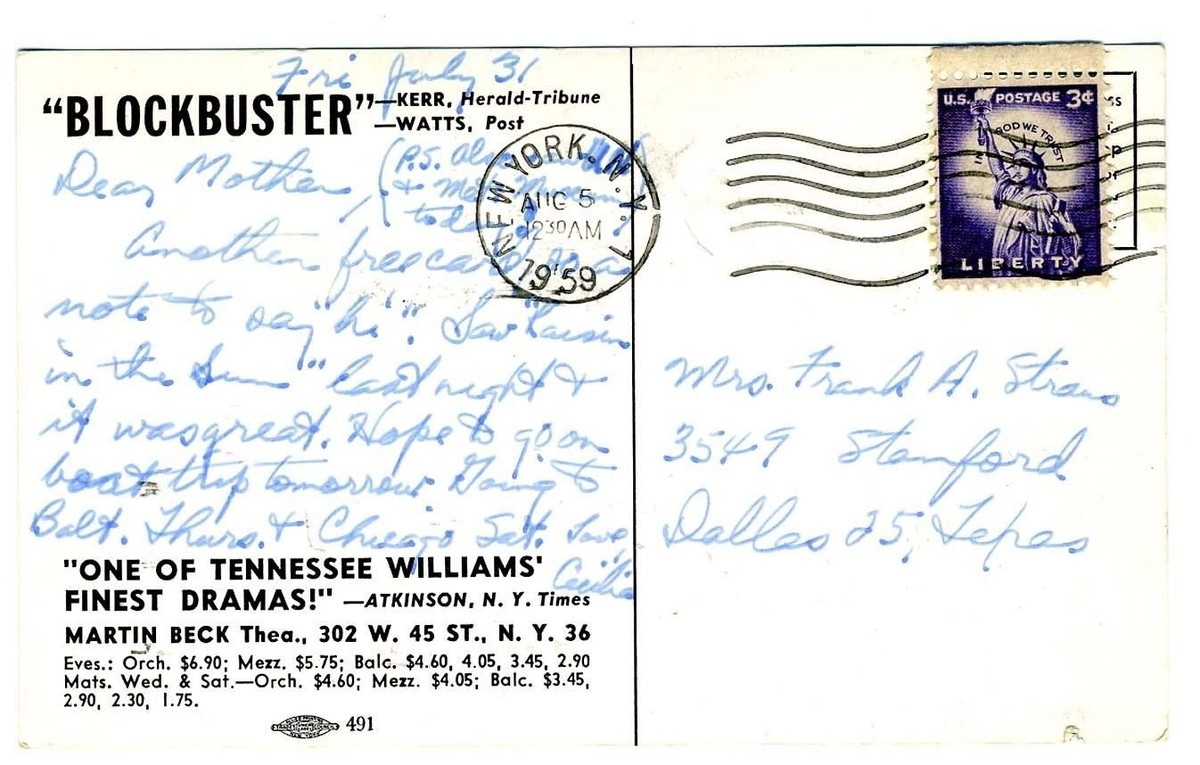 Fri July 31
"BLOCKBUSTER" —KERR, Herald-Tribune
—WATTS, Post
Dear Mother, (P.S. Also
& Museum
today)
Another free card as a
note to say "hi". Saw "Raisin
in the Sun" last night &
it was great. Hope to go on
boat trip tomorrow. Going to
Balt. Thurs. & Chicago Sat. Love,
Cecilia
"ONE OF TENNESSEE WILLIAMS'
FINEST DRAMAS!" —ATKINSON, N. Y. Times
MARTIN BECK Thea., 302 W. 45 ST., N. Y. 36
Eves.: Orch. $6.90; Mezz. $5.75; Balc. $4.60, 4.05, 3.45, 2.90
Mats. Wed. & Sat.—Orch. $4.60; Mezz. $4.05; Balc. $3.45,
2.90, 2.30, 1.75.
491
NEW YORK, N.Y. 1
AUG 5
12 30 AM
1959
U.S. POSTAGE 3¢
IN GOD WE TRUST
LIBERTY
Mrs. Frank A. Straus
3549 Stanford
Dallas 25, Texas